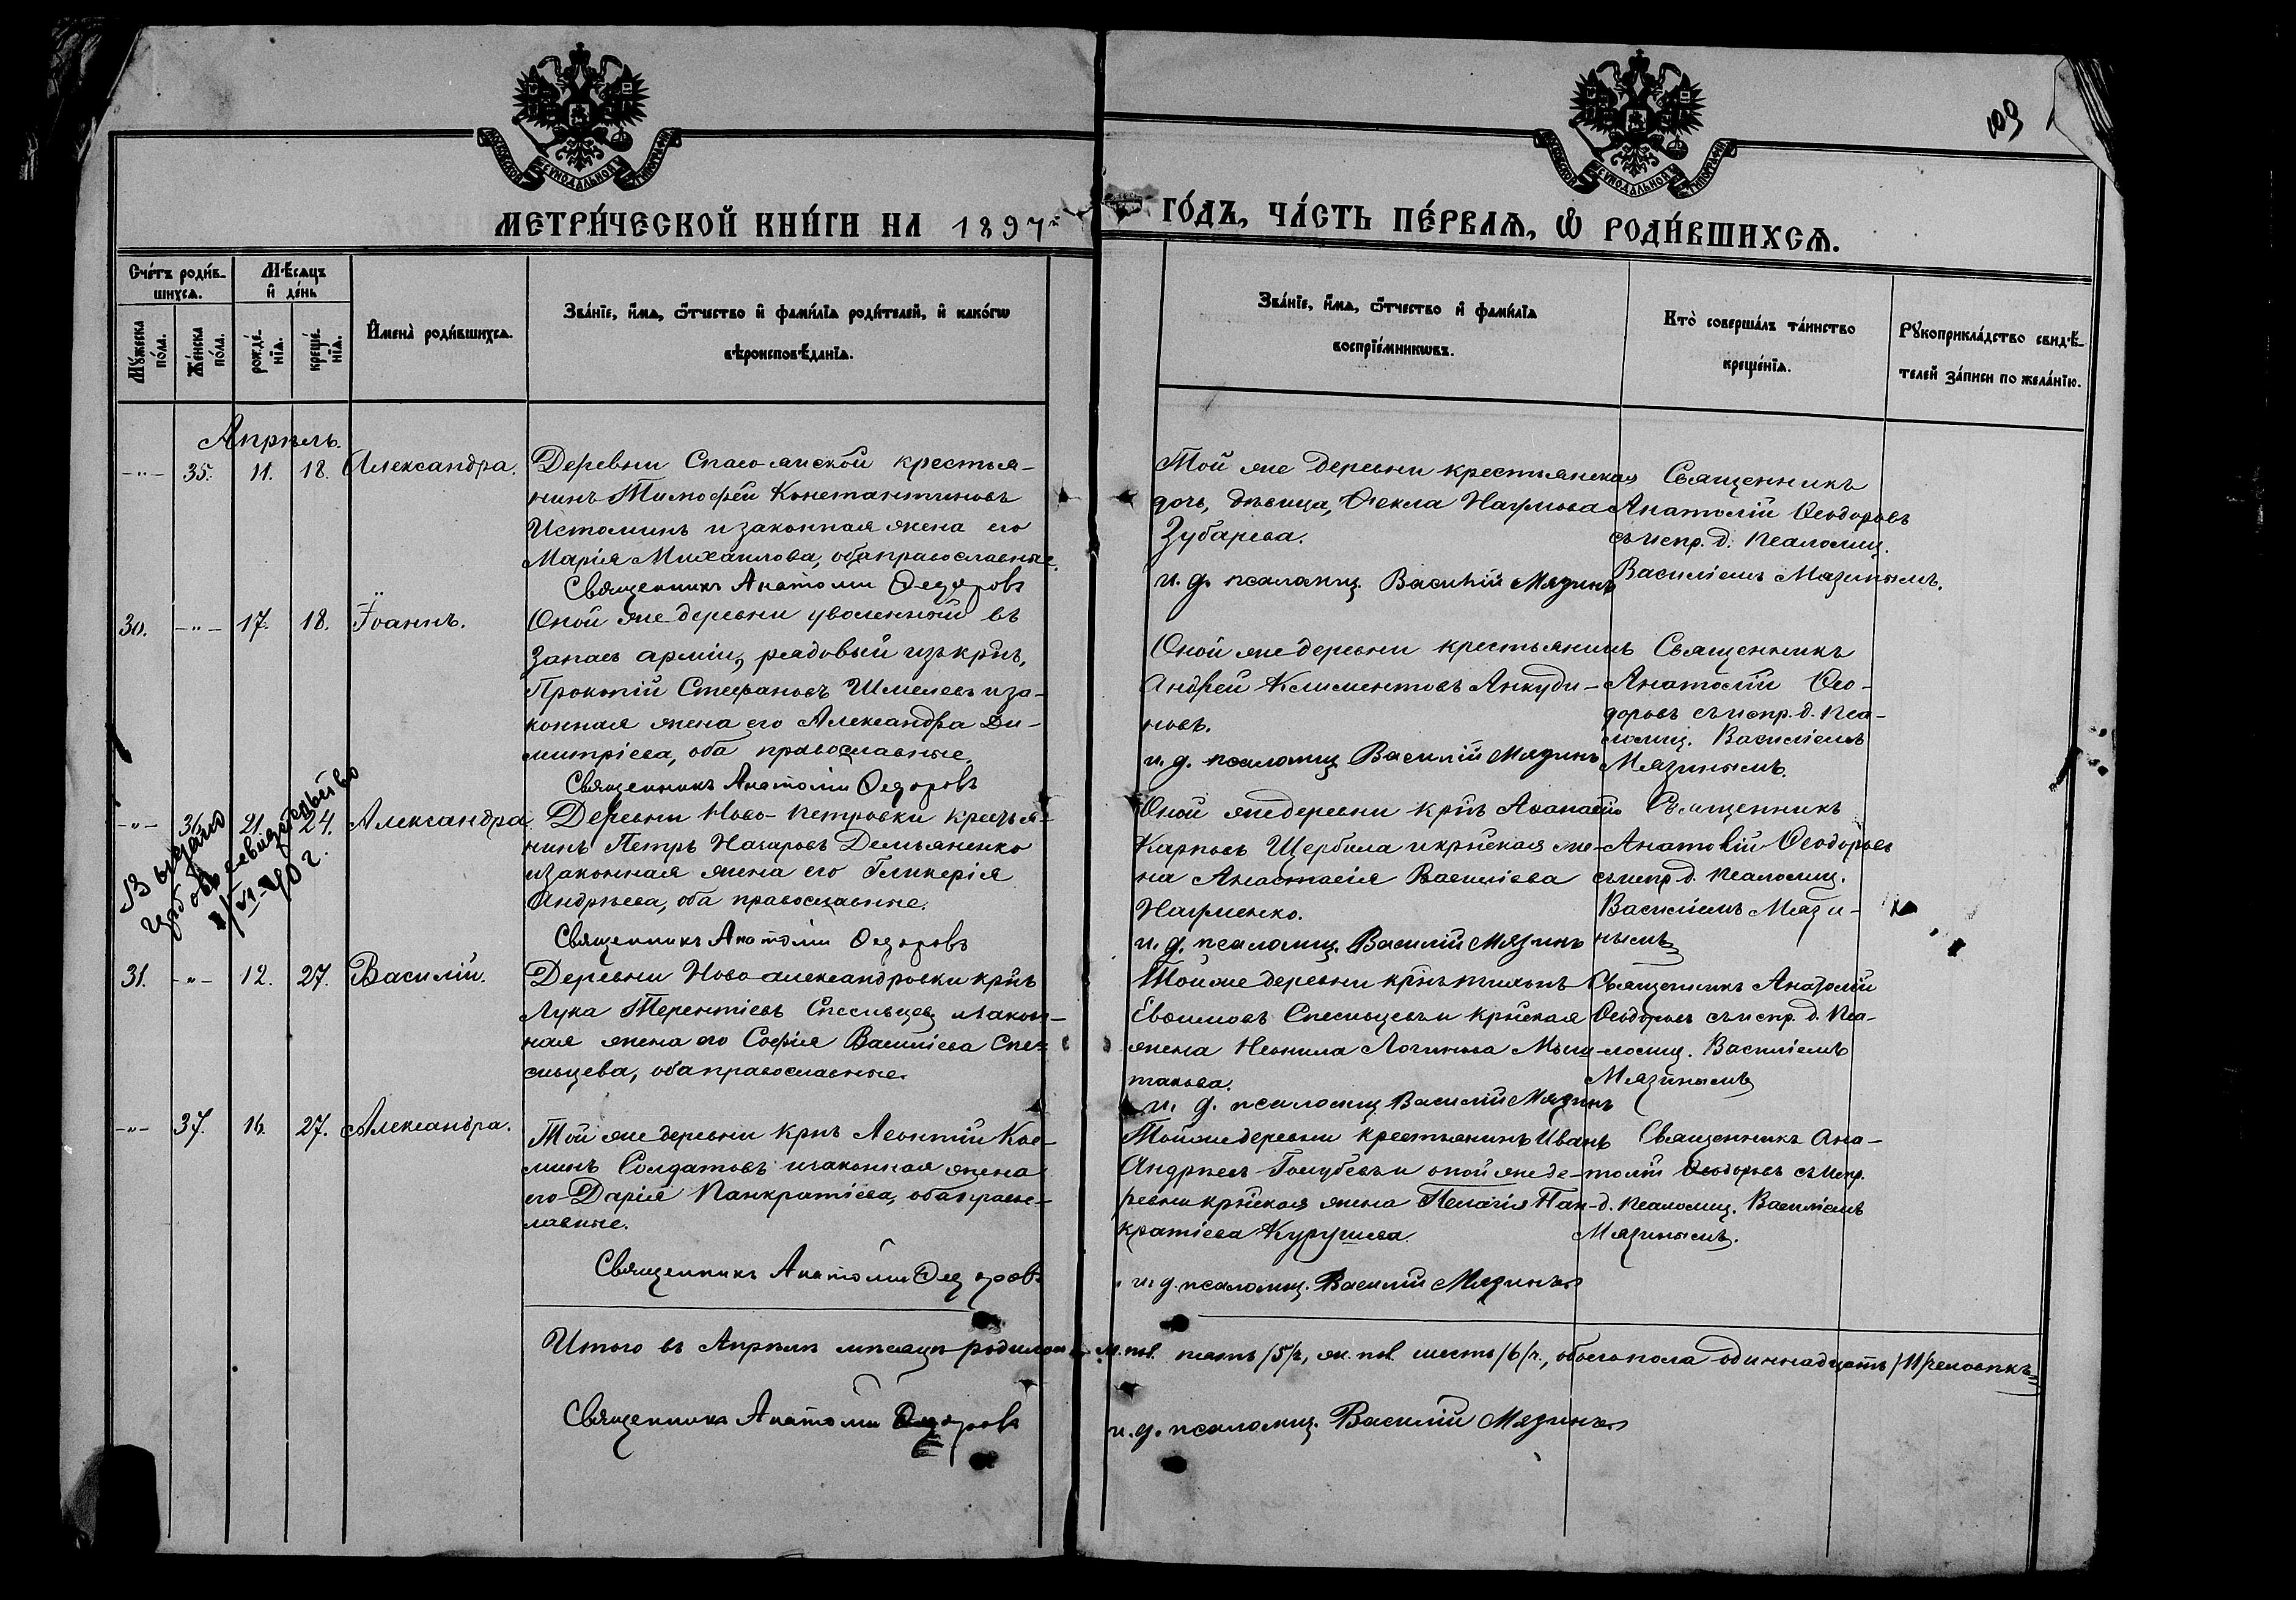 109
МОСКОВСКОЙ СѴНОДАЛЬНОЙ ТИПОГРАФІИ
МОСКОВСКОЙ СѴНОДАЛЬНОЙ ТИПОГРАФІИ
МЕТРИ́ЧЕСКОЙ КНИ́ГИ НА 1897й ГО́ДЪ, ЧА́СТЬ ПЕ́РВАѦ, Ѽ РОДИ́ВШИХСѦ.
Сче́тъ роди́в-
шихсѧ.
Мѣ́сѧцъ
и҆ де́нь
Мꙋ́жеска
по́ла.
Же́нска
по́ла.
рожде́-
нїѧ.
креще́-
нїѧ.
И҆мена̀ роди́вшихсѧ.
Зва́нїе, и҆́мѧ, ѻ҆́тчество и҆ фами́лїѧ роди́телей, и҆ како́гѡ
вѣроисповѣ́данїѧ.
Зва́нїе, и҆́мѧ, ѻ҆́тчество и҆ фами́лїѧ
воспрїе́мникѡвъ.
Кто̀ соверша́лъ та́инство
креще́нїѧ.
Рꙋкоприкла́дство свидѣ́-
телей за́писи по жела́нїю.
Апрѣль.
-"- 35. 11. 18. Александра.
Деревни Спасо-
крестья-
нинъ Тимофей Константиновъ
Истоминъ и законная жена его
Марія Михаилова, оба православные.
Священникъ Анатолій Федоровъ
Той же деревни крестьянская
дочь, дѣвица, Ѳекла Наумова
Зубарева.
и. д. псаломщ. Василій Мязинъ
Священникъ
Анатолій Ѳеодоровъ
съ испр. д. псаломщ.
Василіемъ Мязинымъ.
30. -"- 17. 18. Іоаннъ.
Оной же деревни уволенный въ
запасъ арміи, рядовый изъ крнъ,
Прокопій Стефановъ Шмелевъ и за-
конная жена его Александра Ди-
митріева, оба православные.
Священникъ Анатолій Федоровъ
Оной же деревни крестьянинъ
Андрей Климентовъ Анкуди-
новъ.
и. д. псаломщ. Василій Мязинъ
Священникъ
Анатолій Ѳео-
доровъ съ испр. д. пса-
ломщ. Василіемъ
Мязинымъ.
-"- 36. 21. 24. Александра
Выдано
свидѣтельство
Деревни Ново-Петровки кресья-
нинъ Петръ Назаровъ Демьяненко
и законная жена его Гликерія
Андрѣева, оба православные.
Священникъ Анатолій Федоровъ
Оной же деревни крнъ Аѳанасій
Карповъ Щербина и крнская же-
на Анастасія Василіева
Науменко.
и. д. псаломщ. Василій Мязинъ
Священникъ
Анатолій Ѳеодоровъ
съ испр. д. псаломщ.
Василіемъ Мязи-
нымъ
31. -"- 12. 27. Василій.
Деревни Ново-александровки крнъ
Лука Терентіевъ Спесивцевъ и закон-
ная жена его Софія Василіева Спе-
сивцева, оба православные.
Той же деревни крнъ Тихонъ
Евѳимовъ Спесивцевъ и крнская
жена Неонила Логинова
и. д. псаломщ. Василій Мязинъ
Священникъ Анатолій
Ѳеодоровъ съ испр. д. пса-
ломщ. Василіемъ
Мязинымъ
-"- 37. 16. 27. Александра.
Той же деревни крнъ Леонтій Кос-
минъ Солдатовъ и законная жена
его Дарія Панкратіева, оба право-
славные.
Священникъ Анатолій Федоровъ
Той же деревни крестьянинъ Иванъ
Андрѣевъ Голубевъ и оной же де-
ревни крнская жена Пелагія Пан-
кратіева
и. д. псаломщ. Василій Мязинъ
Священникъ Ана-
толій Ѳеодоровъ съ испр.
д. псаломщ. Василіемъ
Мязинымъ.
Итого въ Апрѣлѣ мѣсяцѣ родилось м. пол. пять /5/ч, ж. пол. шесть /6/ч., обоего пола одиннадцать /11/человѣкъ
Священникъ Анатолій Федоровъ
и. д. псаломщ. Василій Мязинъ